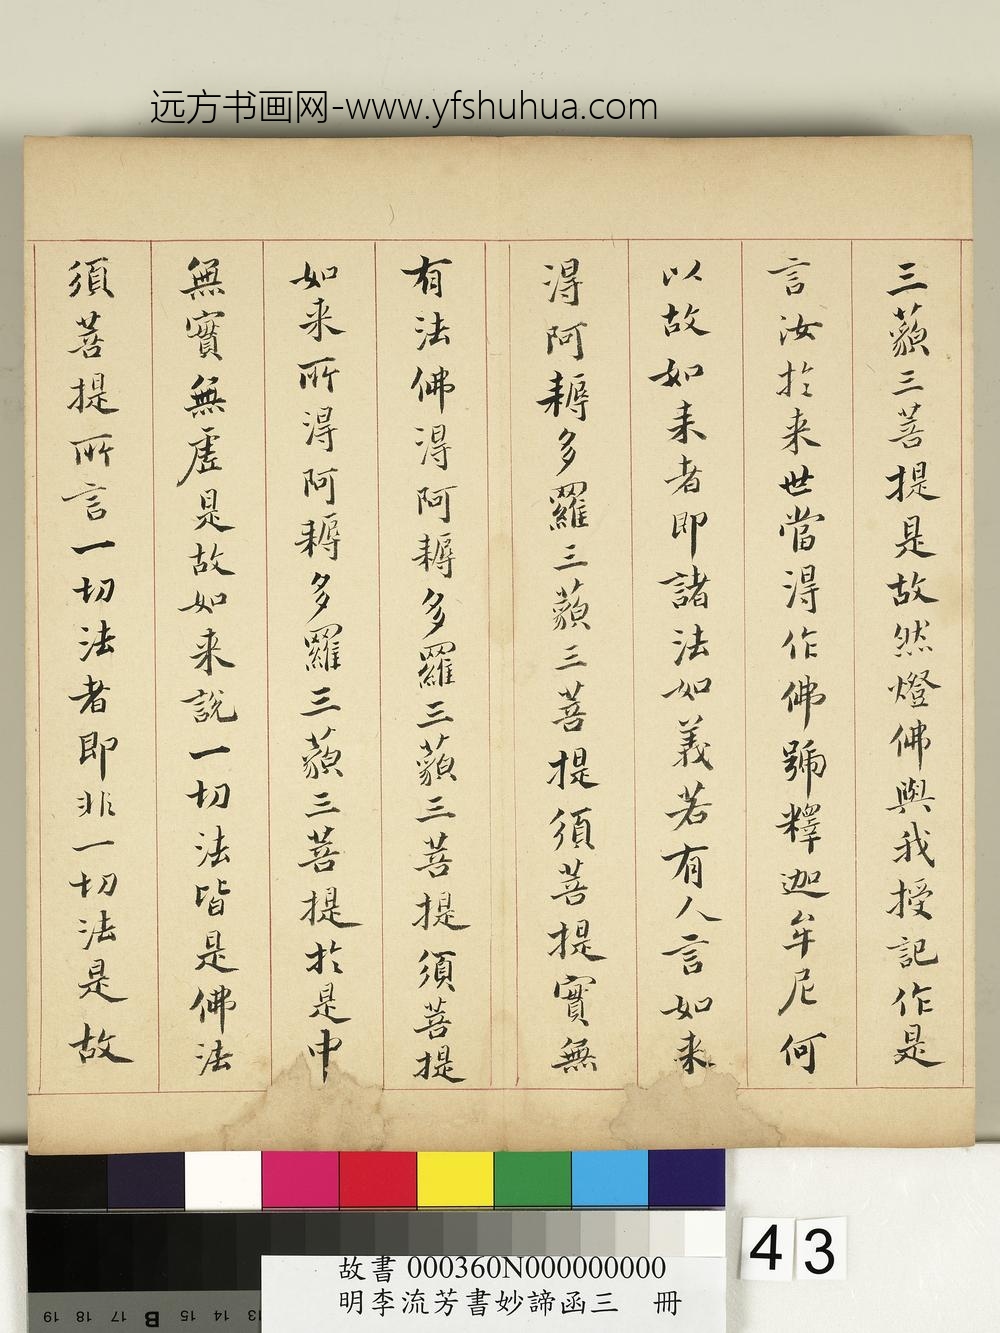 远方书画网-www.yfshuhua.com
三藐三菩提是故然燈佛與我授記作是
言汝於来世當得作佛號釋迦牟尼何
以故如来者即諸法如義若有人言如来
得阿耨多羅三藐三菩提須菩提實無
有法佛得阿耨多羅三藐三菩提須菩提
如来所得阿耨多羅三藐三菩提於是中
無實無虛是故如来說一切法皆是佛法
須菩提所言一切法者即非一切法是故
43
故書 000360N000000000
明李流芳書妙諦函三 冊
19 18 17 B 15 14 13